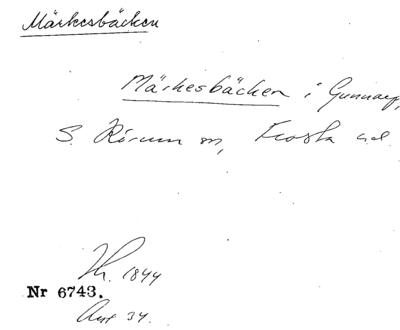 Märkesbäcken
Märkesbäcken i Gunnarp,
S. Rörum sn, Frosta hd.
Th. 1844
Nr 6743.
34.